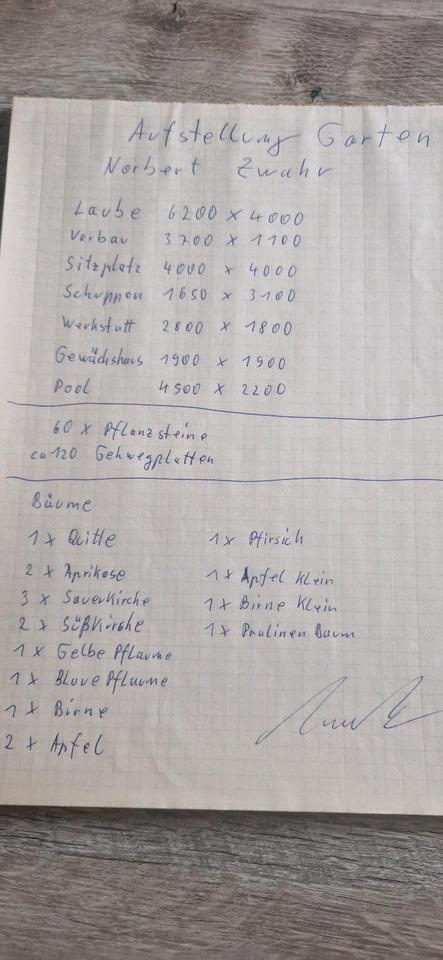 Aufstellung Garten
Norbert Zwahr
Laube 6200 x 4000
Vorbau 3700 x 1100
Sitzplatz 4000 x 4000
Schuppen 1650 x 3100
Werkstatt 2800 x 1800
Gewächshaus 1900 x 1900
Pool 4500 x 2200
60 x Pflanzsteine
ca 120 Gehwegplatten
Bäume
1 x Quitte
2 x Aprikose
3 x Sauerkirche
2 x Süßkirche
1 x Gelbe Pflaume
1 x Blaue Pflaume
1 x Birne
2 x Apfel
1 x Pfirsich
1 x Apfel Klein
1 x Birne Klein
1 x Pralinen Baum